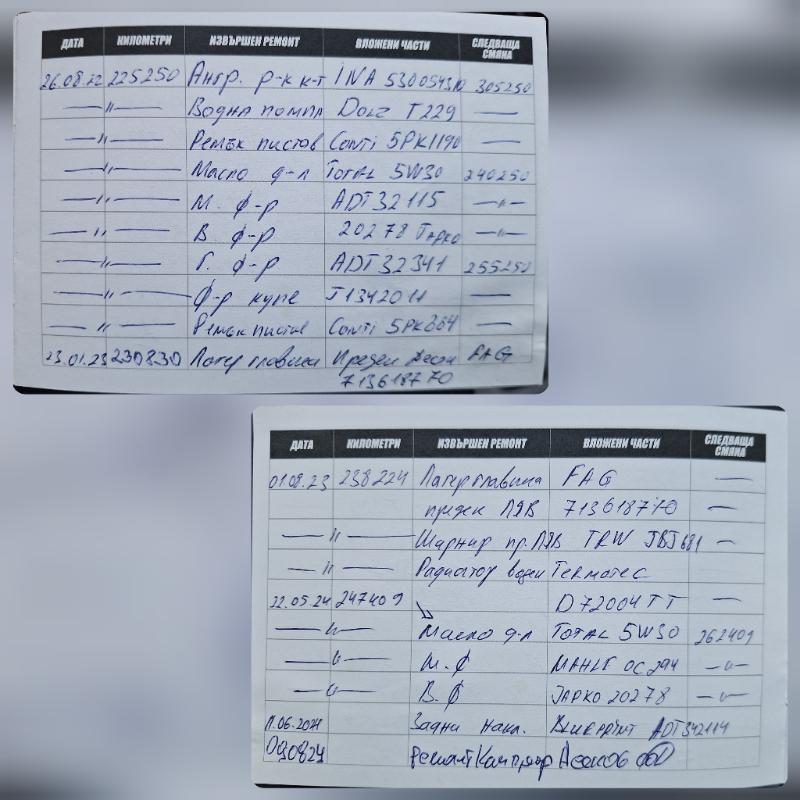 ДАТА КИЛОМЕТРИ ИЗВЪРШЕН РЕМОНТ ВЛОЖЕНИ ЧАСТИ СЛЕДВАЩА СМЯНА
26.08.22 225250 Ангр. р-к к-т INA 530054310 305250
—"— Водна помпа Dolz T229 —
—"— Ремък пистов Conti 5PK1190 —
—"— Масло д-л Total 5W30 240250
—"— М. ф-р ADT32115 —"—
—"— В. ф-р 20278 Japko —"—
—"— Г. ф-р ADT32341 255250
—"— Ф-р купе J1342011 —
—"— Ремък пистов Conti 5PK864 —
23.01.23 230830 Лагер главина Преден десен FAG
713618770
ДАТА КИЛОМЕТРИ ИЗВЪРШЕН РЕМОНТ ВЛОЖЕНИ ЧАСТИ СЛЕДВАЩА СМЯНА
01.08.23 238224 Лагер главина FAG —
преден ляв 713618710 —
—"— Шарнир пр. ляв TRW JBJ681 —
—"— Радиатор воден Termotec
22.05.24 247409 D72004TT —
—"— Масло д-л Total 5W30 262409
—"— М. Ф MAHLE OC294 —"—
—"— В. Ф JAPKO 20278 —"—
11.06.2024 Задни накл. Blueprint ADT342114
090824 Ремонт